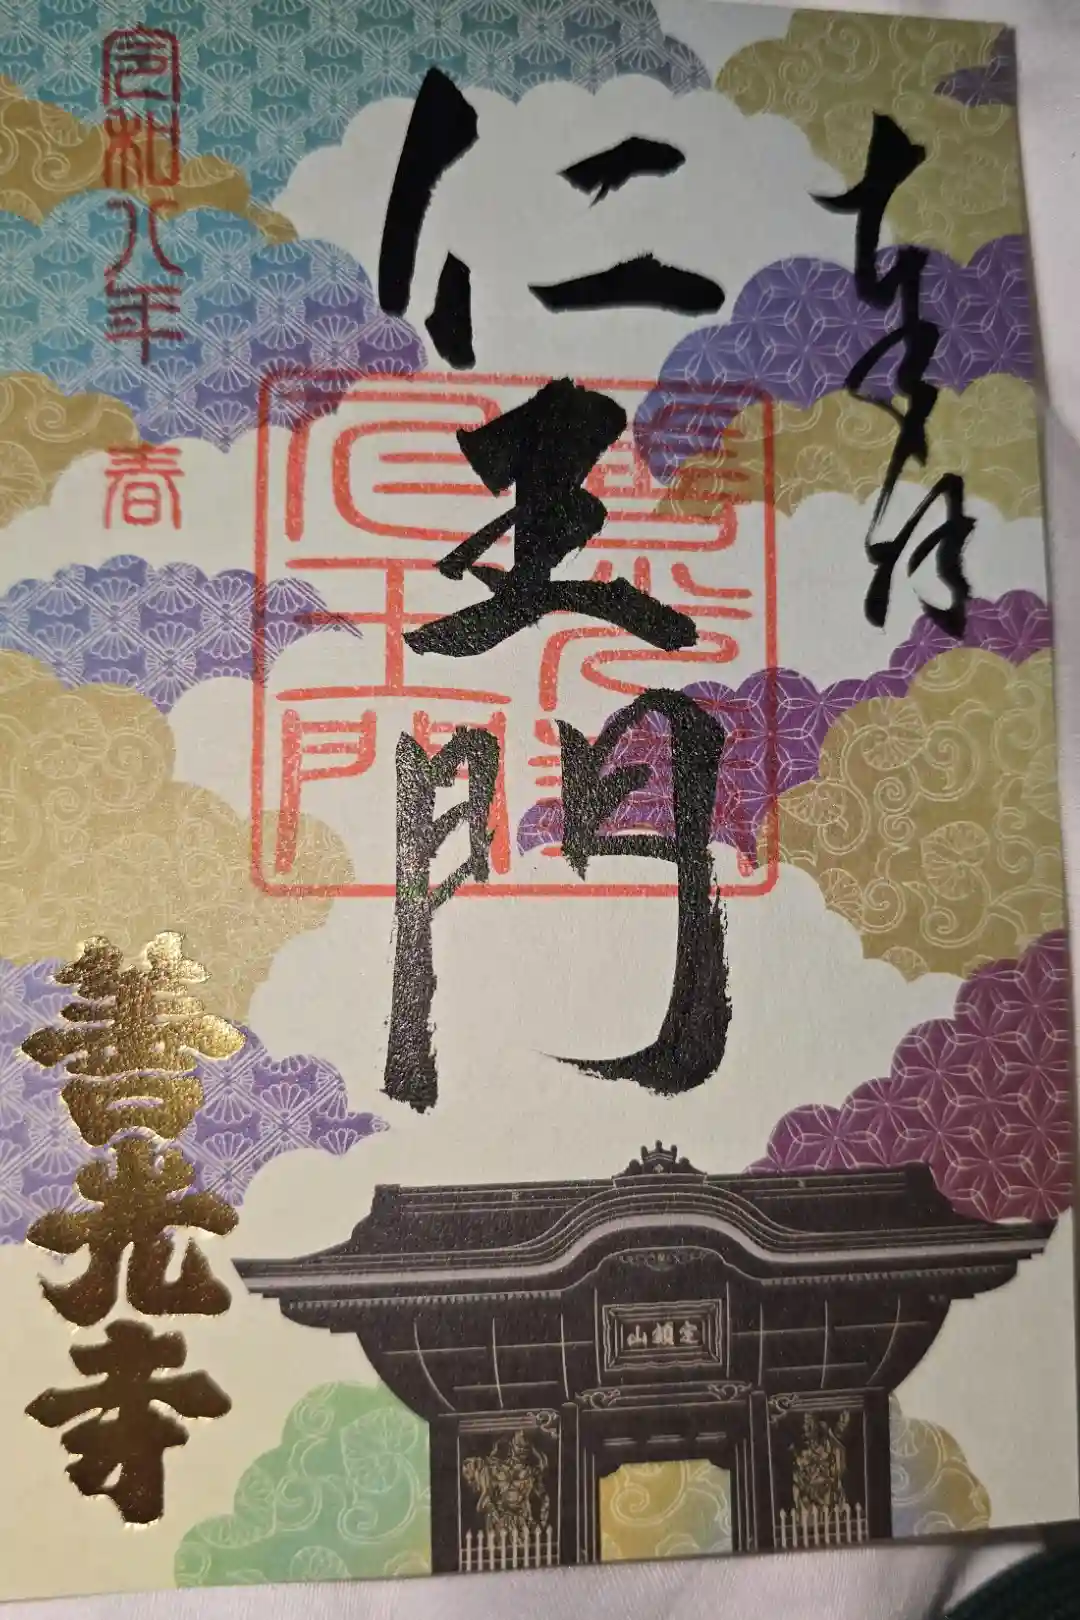 奉拝
仁王門
仁王門
令和八年
春
善光寺
定額山